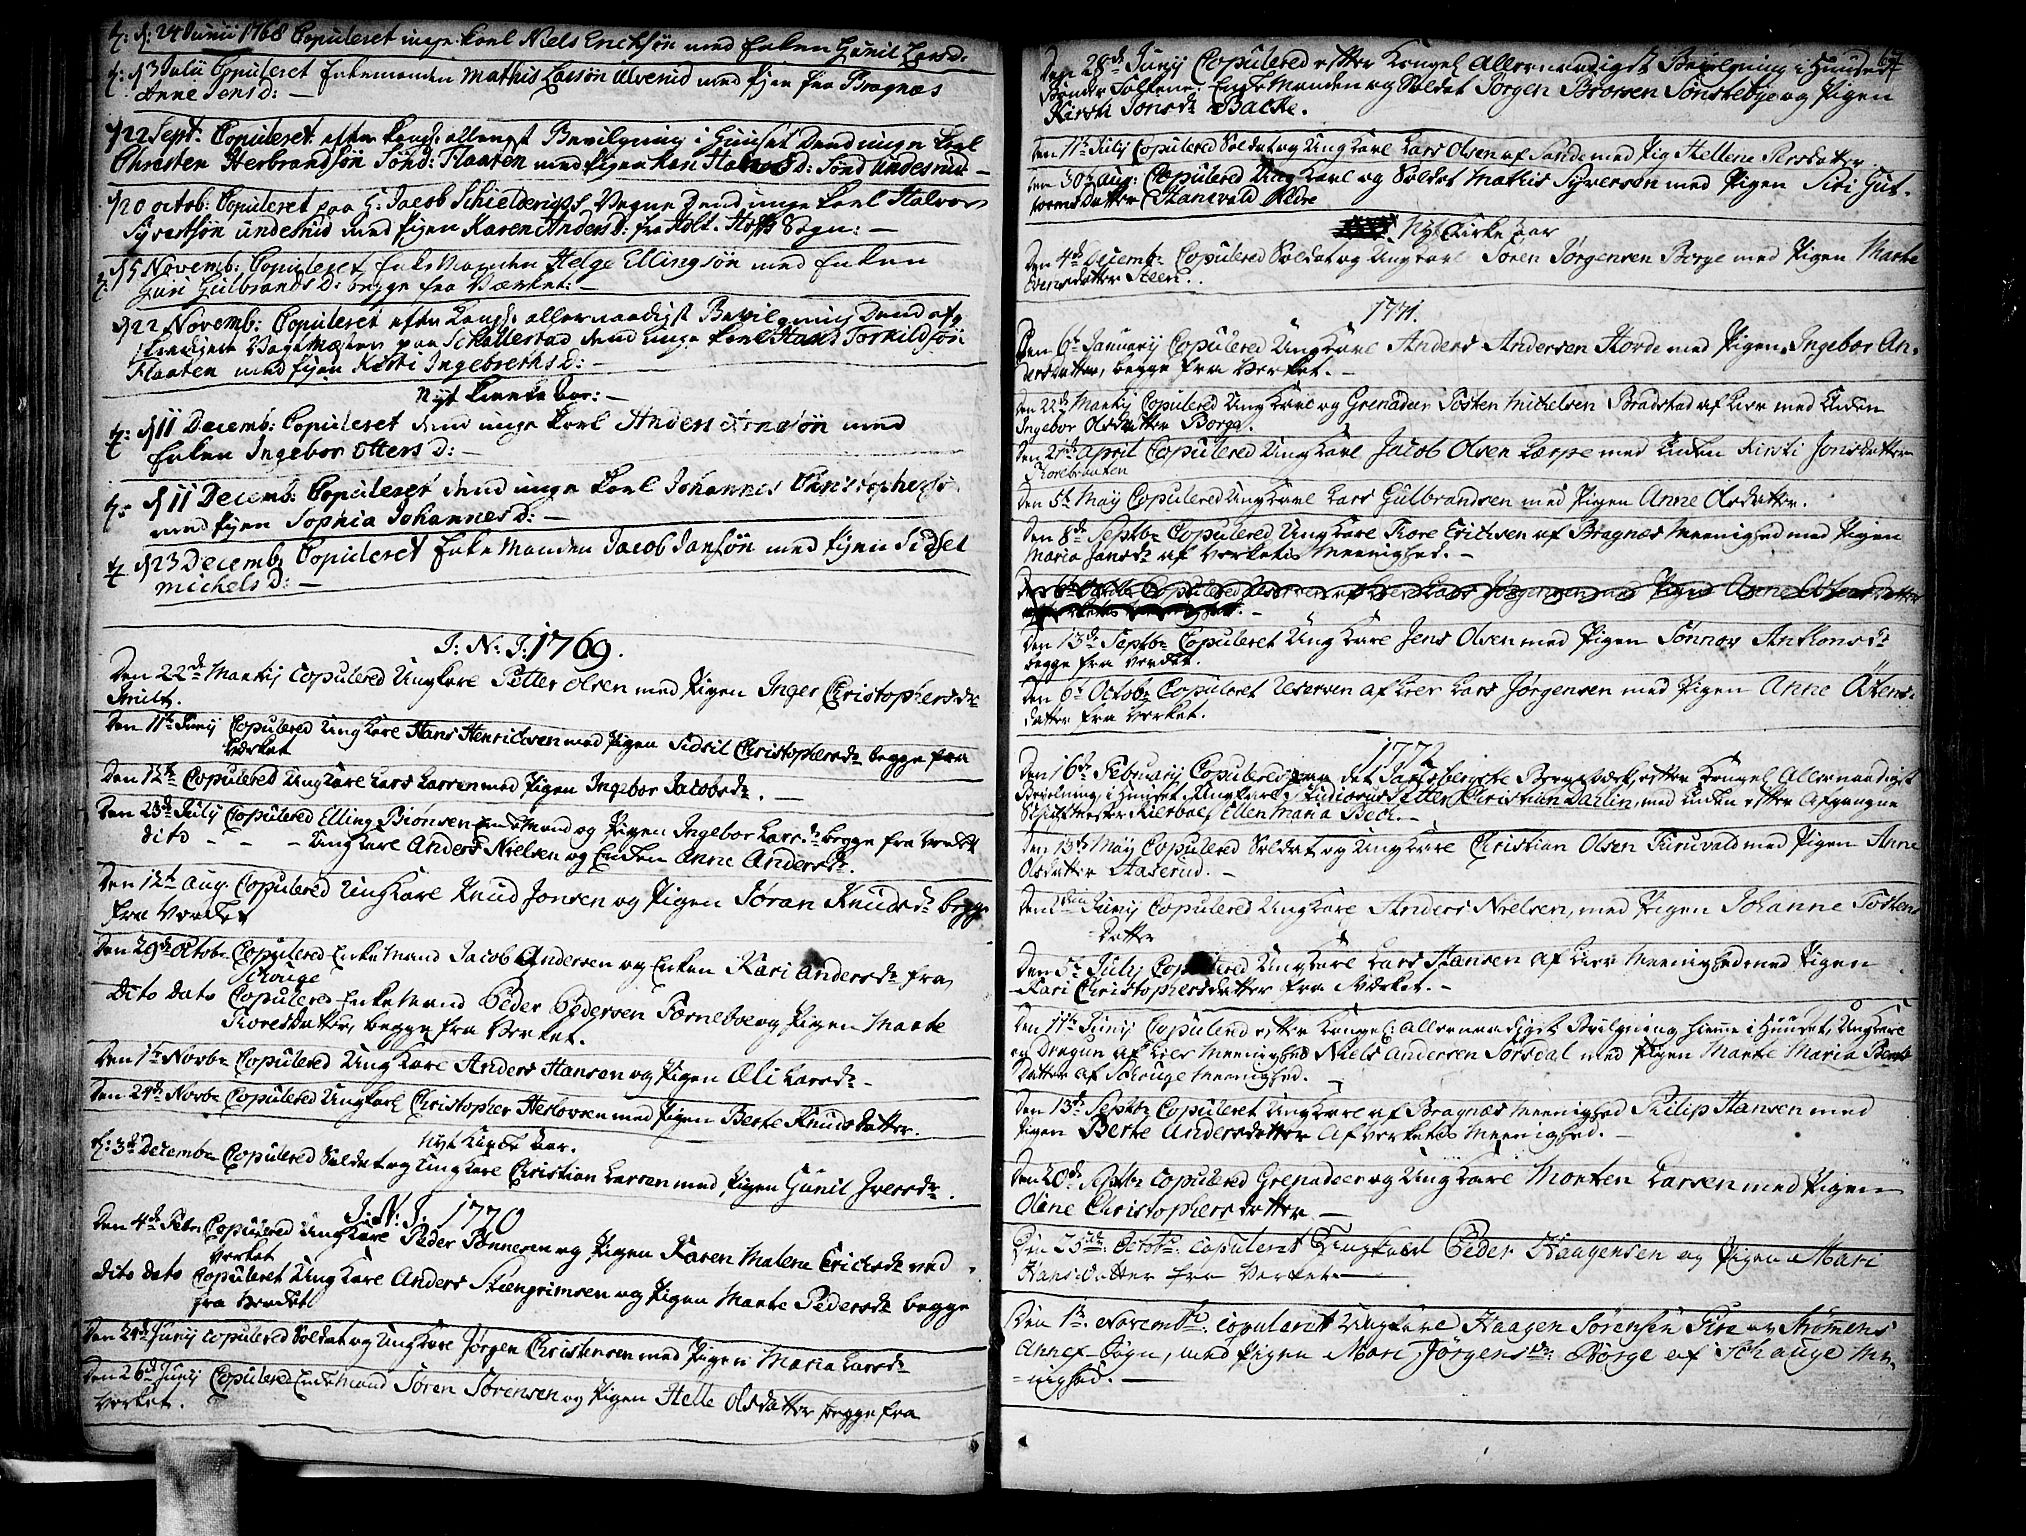 d: 24 Junii 1768 Copuleret unge karl Niels Erichsøn med Enken Gunil Larsd:
d 3 Julii Copuleret Enkemanden Mathis Larsøn Ulverud med Pigen fra Bragnæs
Anne Jens D: —
d 22 Sept: Copuleret efter kongl: allernst Bevilgning i Huuset Dend unge karl
Christen Herbrandsøn Sønd: Flaaten med Pigen Kari Halvors D: Sønd Undesrud —
d 20 octob: Copuleret paa H: Jacob Schielderups Vegne Dend unge karl Halvor
Syvertsøn Undesrud med Pigen Karen Anders D: fra Holt. Hoffs Sogn: —
d 5 Novemb: Copuleret Enke Manden Helge Ellingsøn med Enken
Guri Gulbrands D: begge fra Værket: —
d 22 Novemb: Copuleret efter kongl: allernaadigst Bevilgning Dend af
Vagtmæster paa Schallestad dend unge karl Hans Torkildsøn
Flaaten med Pigen Kisti Ingebreths D: —
Nyt Kirke Aar: —
d 11 Decemb: Copuleret dend unge karl Anders Arnesøn med
Enken Ingebor Otters D: —
d 11 Decemb: Copuleret dend unge karl Johannes Christophers
med Pigen Sophia Johannes D: —
d 23 Decemb: Copuleret Enke Manden Jacob Jansøn med Pigen Sidsel
Michels D: —
J: N: J: 1769.
Den 22de Martij Copulered Ungkarl Petter Olsen med Pigen Inger Christophersdr
Smidt.
Den 11te Junij Copulered Ungkarl Hans Henrichsen med Pigen Sidsil Christophersdr begge fra
Værket
Den 12te Copulered Ungkarl Lars Larsen med Pigen Ingebor Jacobsdr. —
Den 23de July Copulered Elling Biønsen Enkemand og Pigen Ingebor Larsdr begge fra Verket
dito - - - Ungkarl Anders Nielsen og Enken Anne Andersdr.
Den 12te Aug. Copulered Ungkarl Knud Jonsen og Pigen Jøran Knudsdr begge
fra Verket
Den 29de Octobr Copulered Enkemand Jacob Andersen og Enken Kari Andersdr fra
Schouge
Dito Dato Copulered Enkemand Peder Pedersen Torneboe og Pigen Marte
Thoresdatter, begge fra Verket.
Den 1te Novbr Copulered Ungkarl Anders Hansen og Pigen Oli Larsdr —
Den 24de Novbr Copulered Ungkarl Christopher Heslovsen med Pigen Berte Knudsdatter.
Nyt Kirke Aar.
d: 3de Decembr Copulered Soldat og Ungkarl Christian Larsen med Pigen Gunil Iversdr.
J: N: J. 1770
Den 4de Febr: Copulered Ungkarl Peder Tønnesen og Pigen Karen Malene Erichsdr ved
Verket
Dito Dato Copuleret Ungkarl Anders Steengrimsen og Pigen Marte Pedersdr begge
fra Verket
Den 24de Junij Copulered Soldat og Ungkarl Jørgen Christensen med Pigen Maria Larsdr
Den 26de Junij Copulered Enkemand Søren Sørensen og Pigen Helle Olsdatter begge fra
Verket.
67
Den 28de Junij Copulered efter Kongel Allernaadigst Bevilgning i Huuset
Bonde Folkene: Enkemanden og Soldat Jørgen Brorsen Sønstebye og Pigen
Kirsti Jonsdr Bache.
Den 11te July Copulered Soldat og Ungkarl Lars Olsen af Sande med Pig Hellene Persdatter
Den 30te Aug: Copulered Ungkarl og Soldat Mathis Syversen med Pigen Siri Gut-
tormsdatter Hanevald Eldre
Nyt Kirke Aar
Den 4de Decembr Copulered Soldat og Ungkarl Søren Jørgensen Berge med Pigen Marte
Evensdatter Steen.
1771.
Den 6te January Copulered Ungkarl Anders Andersen Horde med Pigen Ingebor An-
dersdatter, begge fra Verket. —
Den 22de Martij Copulered Ungkarl og Grenadeer Tosten Michelsen Bradstad af Lier med Enken
Ingebor Olsdatter Borge.
Den 21de April Copulered Ungkarl Jacob Olsen Lærpe med Enken Kirsti Jonsdatter
Thorebraaten
Den 5te May Copulered Ungkarl Lars Gulbrandsen med Pigen Anne Olsdatter.
Den 8de Septbr Copulered Ungkarl Thore Erichsen af Bragnæs Meenighed med Pigen
Maria Jansdr af Verkets Meenighed. —
Den 6te Octobr Copulered Reserven af Lier Lars Jørgensen med Pigen Anne Ostensdatter
af Verkets Meenighed. —
Den 13de Septbr Copuleret Ungkarl Jens Olsen med Pigen Tønnor Anthonsdr
begge fra Verket.
Den 6te Octobr Copuleret Reserven af Lier Lars Jørgensen med Pigen Anne Østens-
datter fra Verket.
1772
Den 16de February Copulered paa det Jarlsbergske Bergværk, efter Kongel Allernaadigst
Bevilgning, i Huuset Ungkarl, Studiosus Petter Christian Darlin, med Enken efter Afgangne
Skiktmester Kierbal Ellen Maria Bech. —
Den 13de May Copulered Soldat og Ungkarl Christian Olsen Furuvald med Pigen Anne
Olsdatter Haserud. —
Den Junij Copulered Ungkarl Anders Nielsen, med Pigen Johanne Tostens
Datter
Den 5te July Copulered Ungkarl Lars Hansen af Lier Meenighed med Pigen
Kari Christophersdatter fra Værket. —
Den 11te Junij Copulered efter Kongel: Allernaadigst Bevilgning hieme i Huuset, Ungkarl
og Dragun af Lier Meenighed Niels Andersen Sørsdal med Pigen Marte Maria Bents
Datter af Schouge Meenighed.
Den 13de Septbr Copuleret Ungkarl af Bragnæs Meenighed Philip Hansen med
Pigen Berte Andersdatter af Verkets Meenighed. —
Den 20de Septbr Copulered Grenadeer og Ungkarl Morten Larsen med Pigen
Oline Christophersdatter —
Den 25de: Octobr: Copuleret Ungkarl Peder Haagensen og Pigen Mari
Hansdatter fra Verket. —
Den 1te Novembr: Copuleret Ungkarl Haagen Sørensen Fire af Strømens
Annex Sogn, med Pigen Mari Jørgensdr: Borge af Schauge Me-
nighed. —